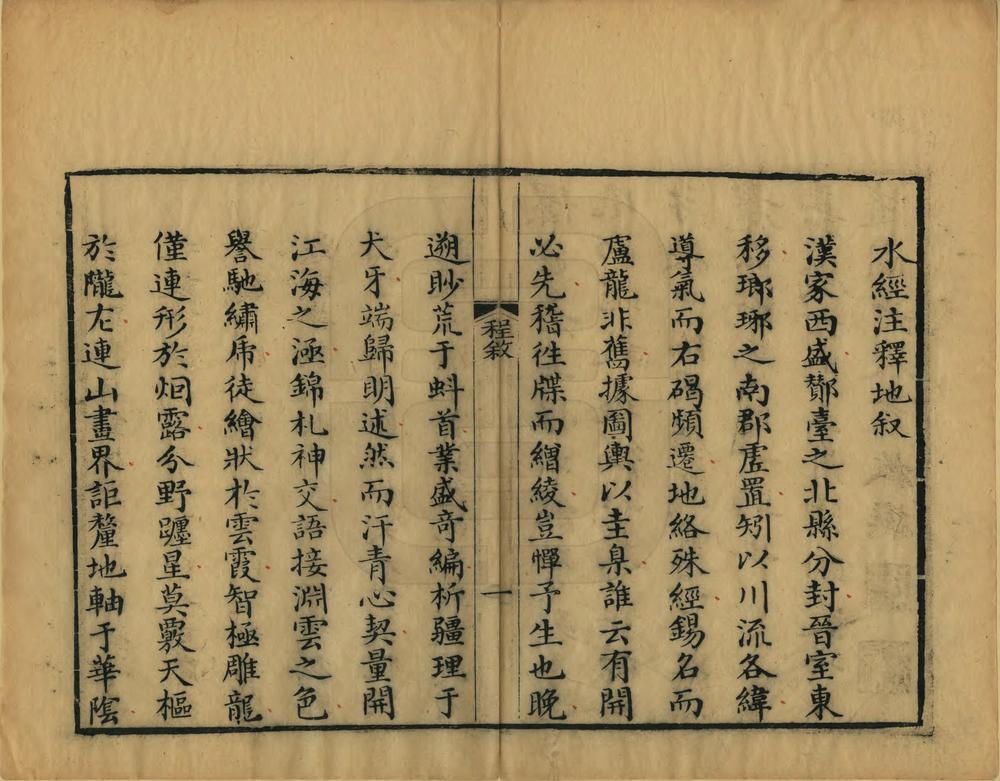 水經注釋地叙
漢家西盛鄼臺之北縣分封晉室東
移瑯琊之南郡虛置矧以川流各緯
導氣而右碣頻遷地絡殊經錫名而
盧龍非舊據圖輿以圭臬誰云有開
必先稽往牒而繒綾豈憚予生也晚
程敘
一
遡眇荒于蚪首業盛奇編析疆理于
犬牙端歸明述然而汗青心契量開
江海之涵錦札神交語接淵雲之色
譽馳繡虎徒繪狀於雲霞智極雕龍
僅連形於烟露分野躔星莫覈天樞
於隴左連山畫界詎釐地軸于華陰